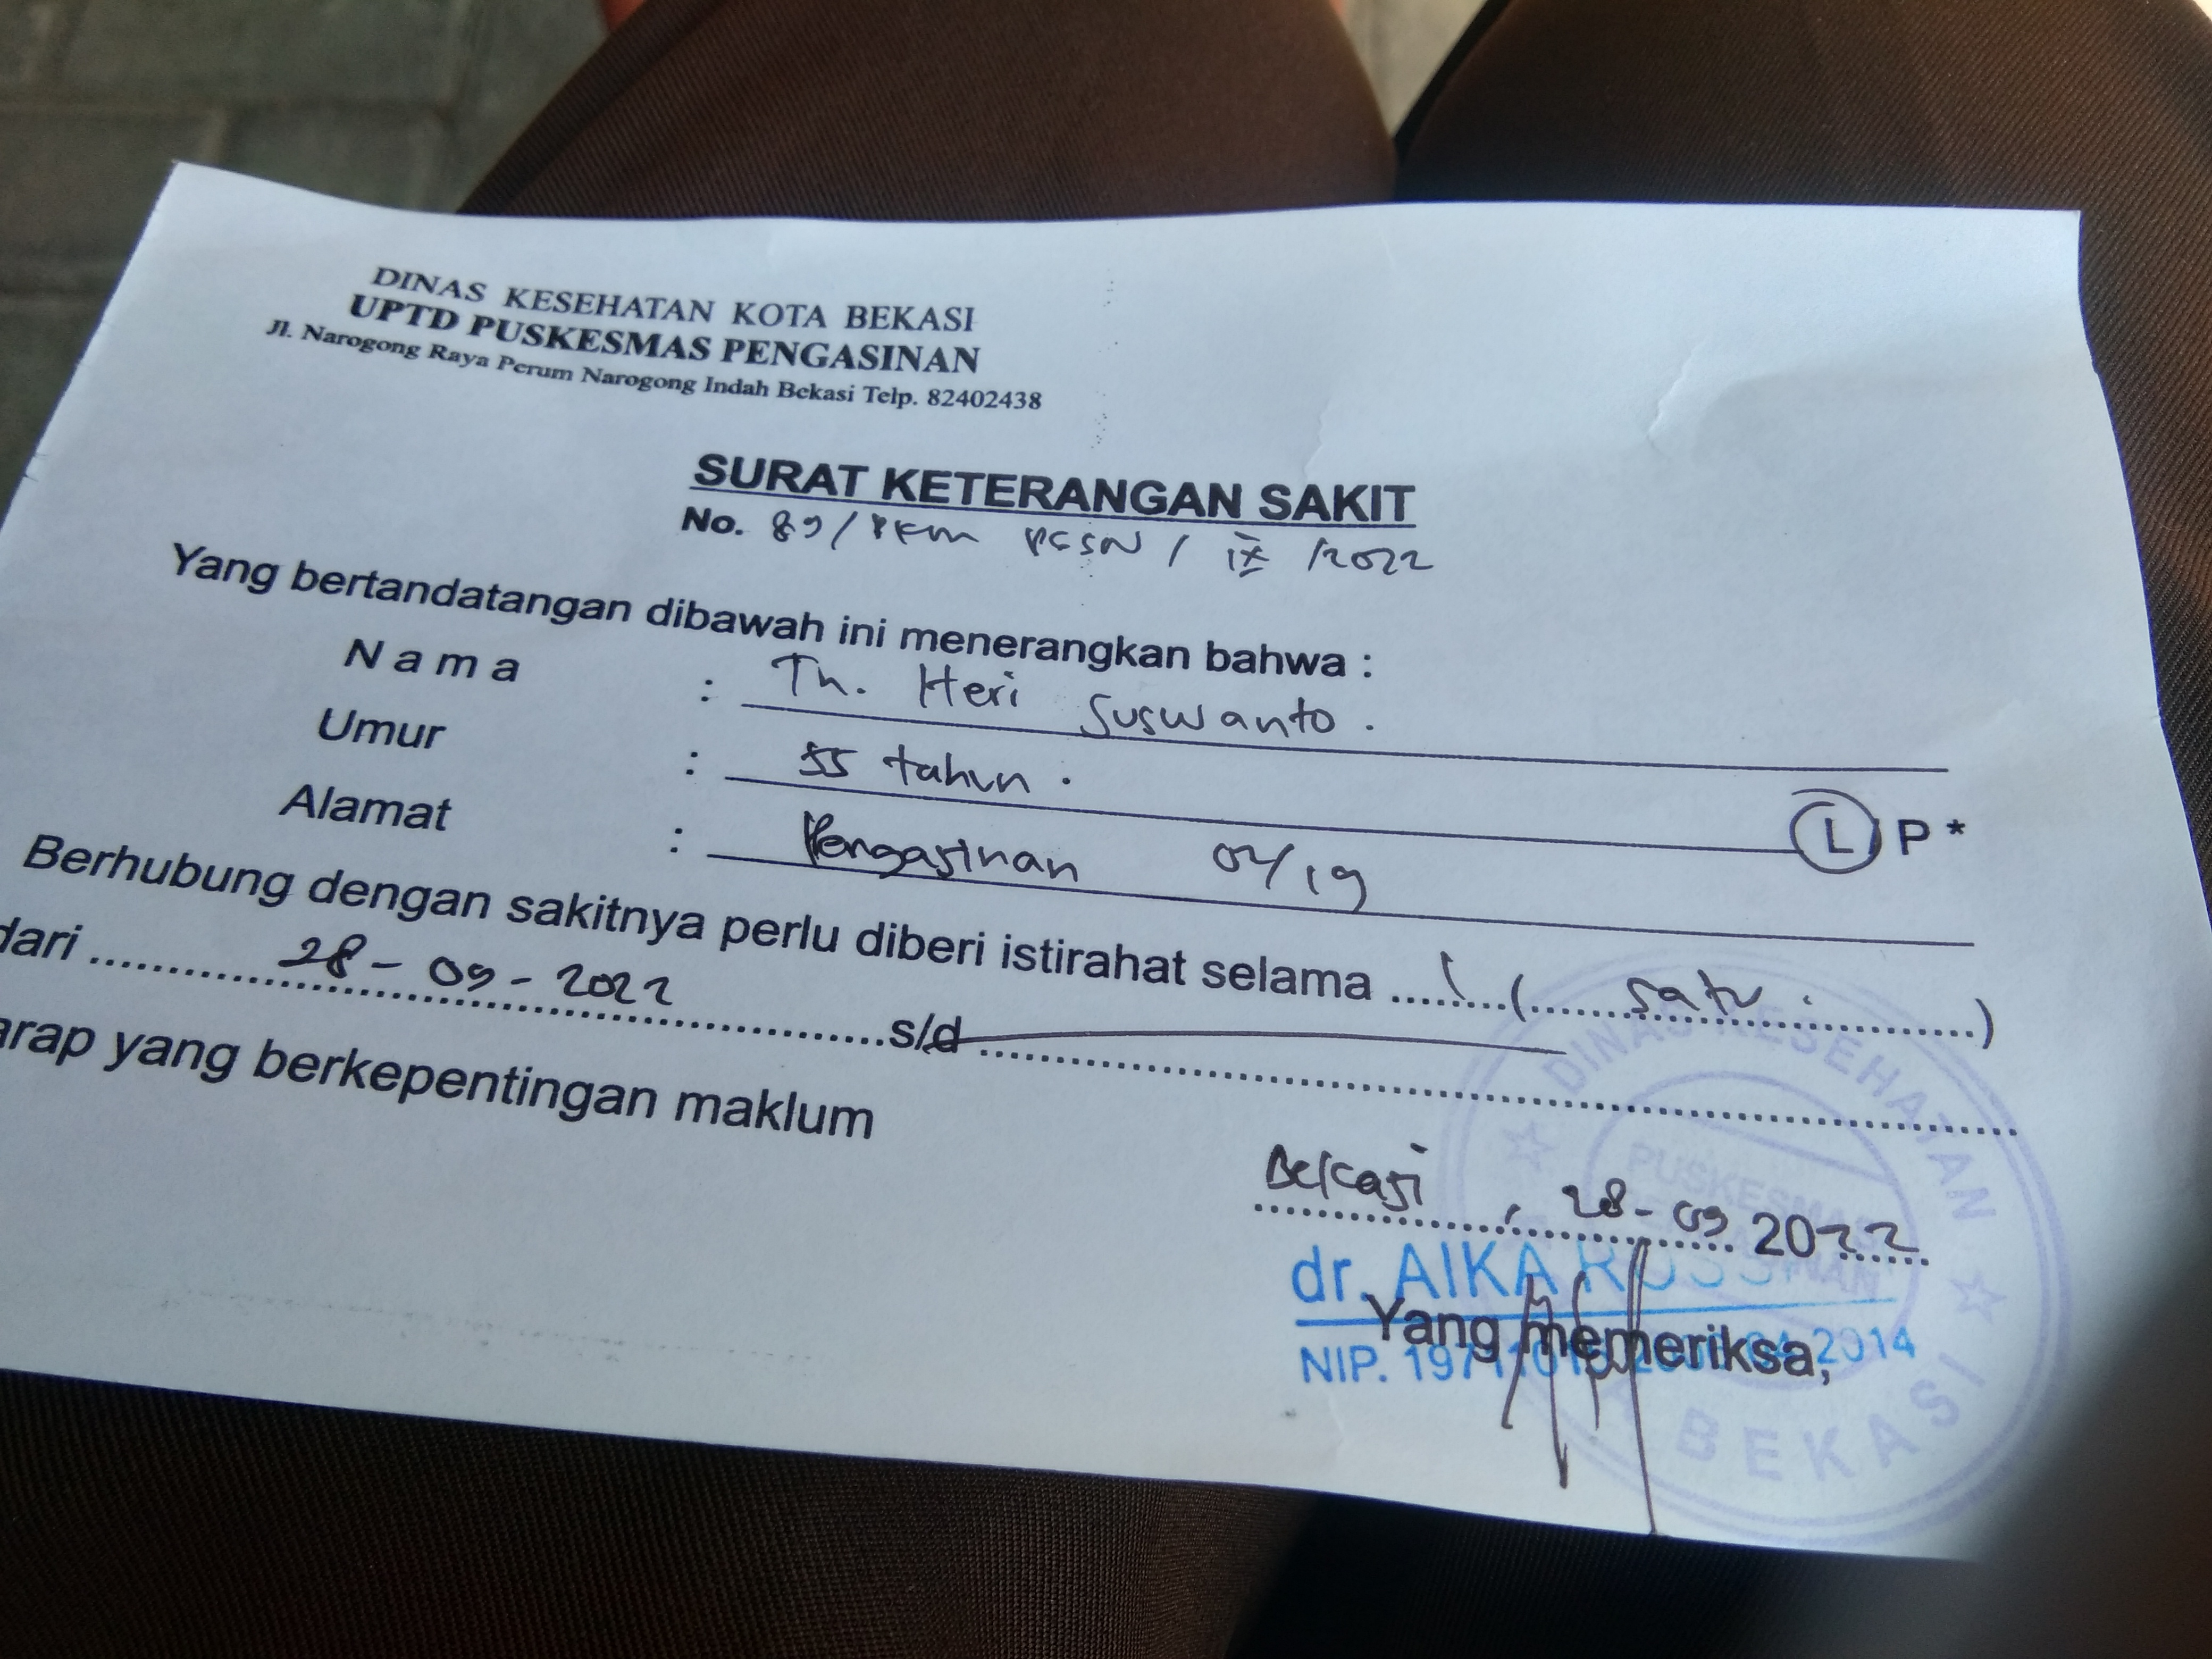 DINAS KESEHATAN KOTA BEKASI
UPTD PUSKESMAS PENGASINAN
Jl. Narogong Raya Perum Narogong Indah Bekasi Telp. 82402438
SURAT KETERANGAN SAKIT
No. 89/PKM PGSN / IX /2022
Yang bertandatangan dibawah ini menerangkan bahwa :
N a m a : Tn. Heri Suswanto.
Umur : 55 tahun. L / P *
Alamat : Pengasinan 02/19
Berhubung dengan sakitnya perlu diberi istirahat selama ........1....(.....satu.................)
dari .......28-09-2022.......s/d.......
arap yang berkepentingan maklum
Bekasi, 28-09 2022
dr. AIKA
Yang memeriksa,
NIP. 2014
DINAS KESEHATAN
PUSKESMAS
BEKASI